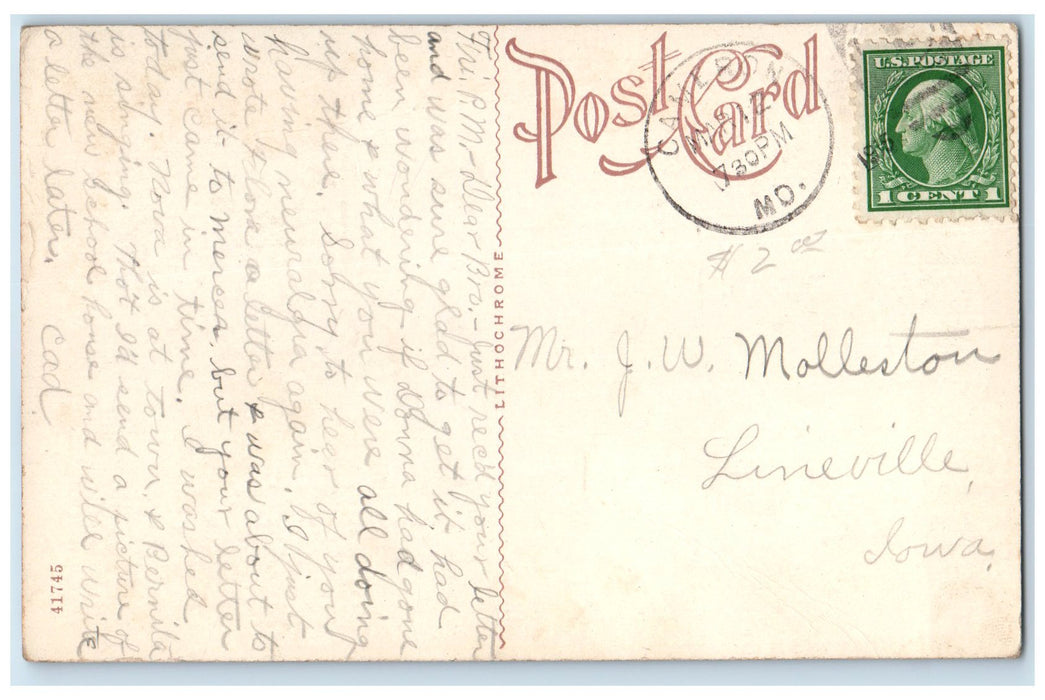 Post Card
U.S. POSTAGE
1 CENT 1
730PM
MO.
$2 00
Mr. J. W. Molleston
Lineville,
Iowa.
LITHOCHROME
41745
Fri. P.M. - Dear Bro. - Just rec'd your letter
and was sure glad to get it had
been wondering if Donna had gone
home & what you were all doing
up there. Sorry to hear of you
having neuralgia again. I just
wrote Flora a letter & was about to
send it to Mercer, but your letter
just came in time. I washed
today. Nova is at town, & Bernita
is singing. Thot I'd send a picture of
the new school house and will write
a letter later. Cad.